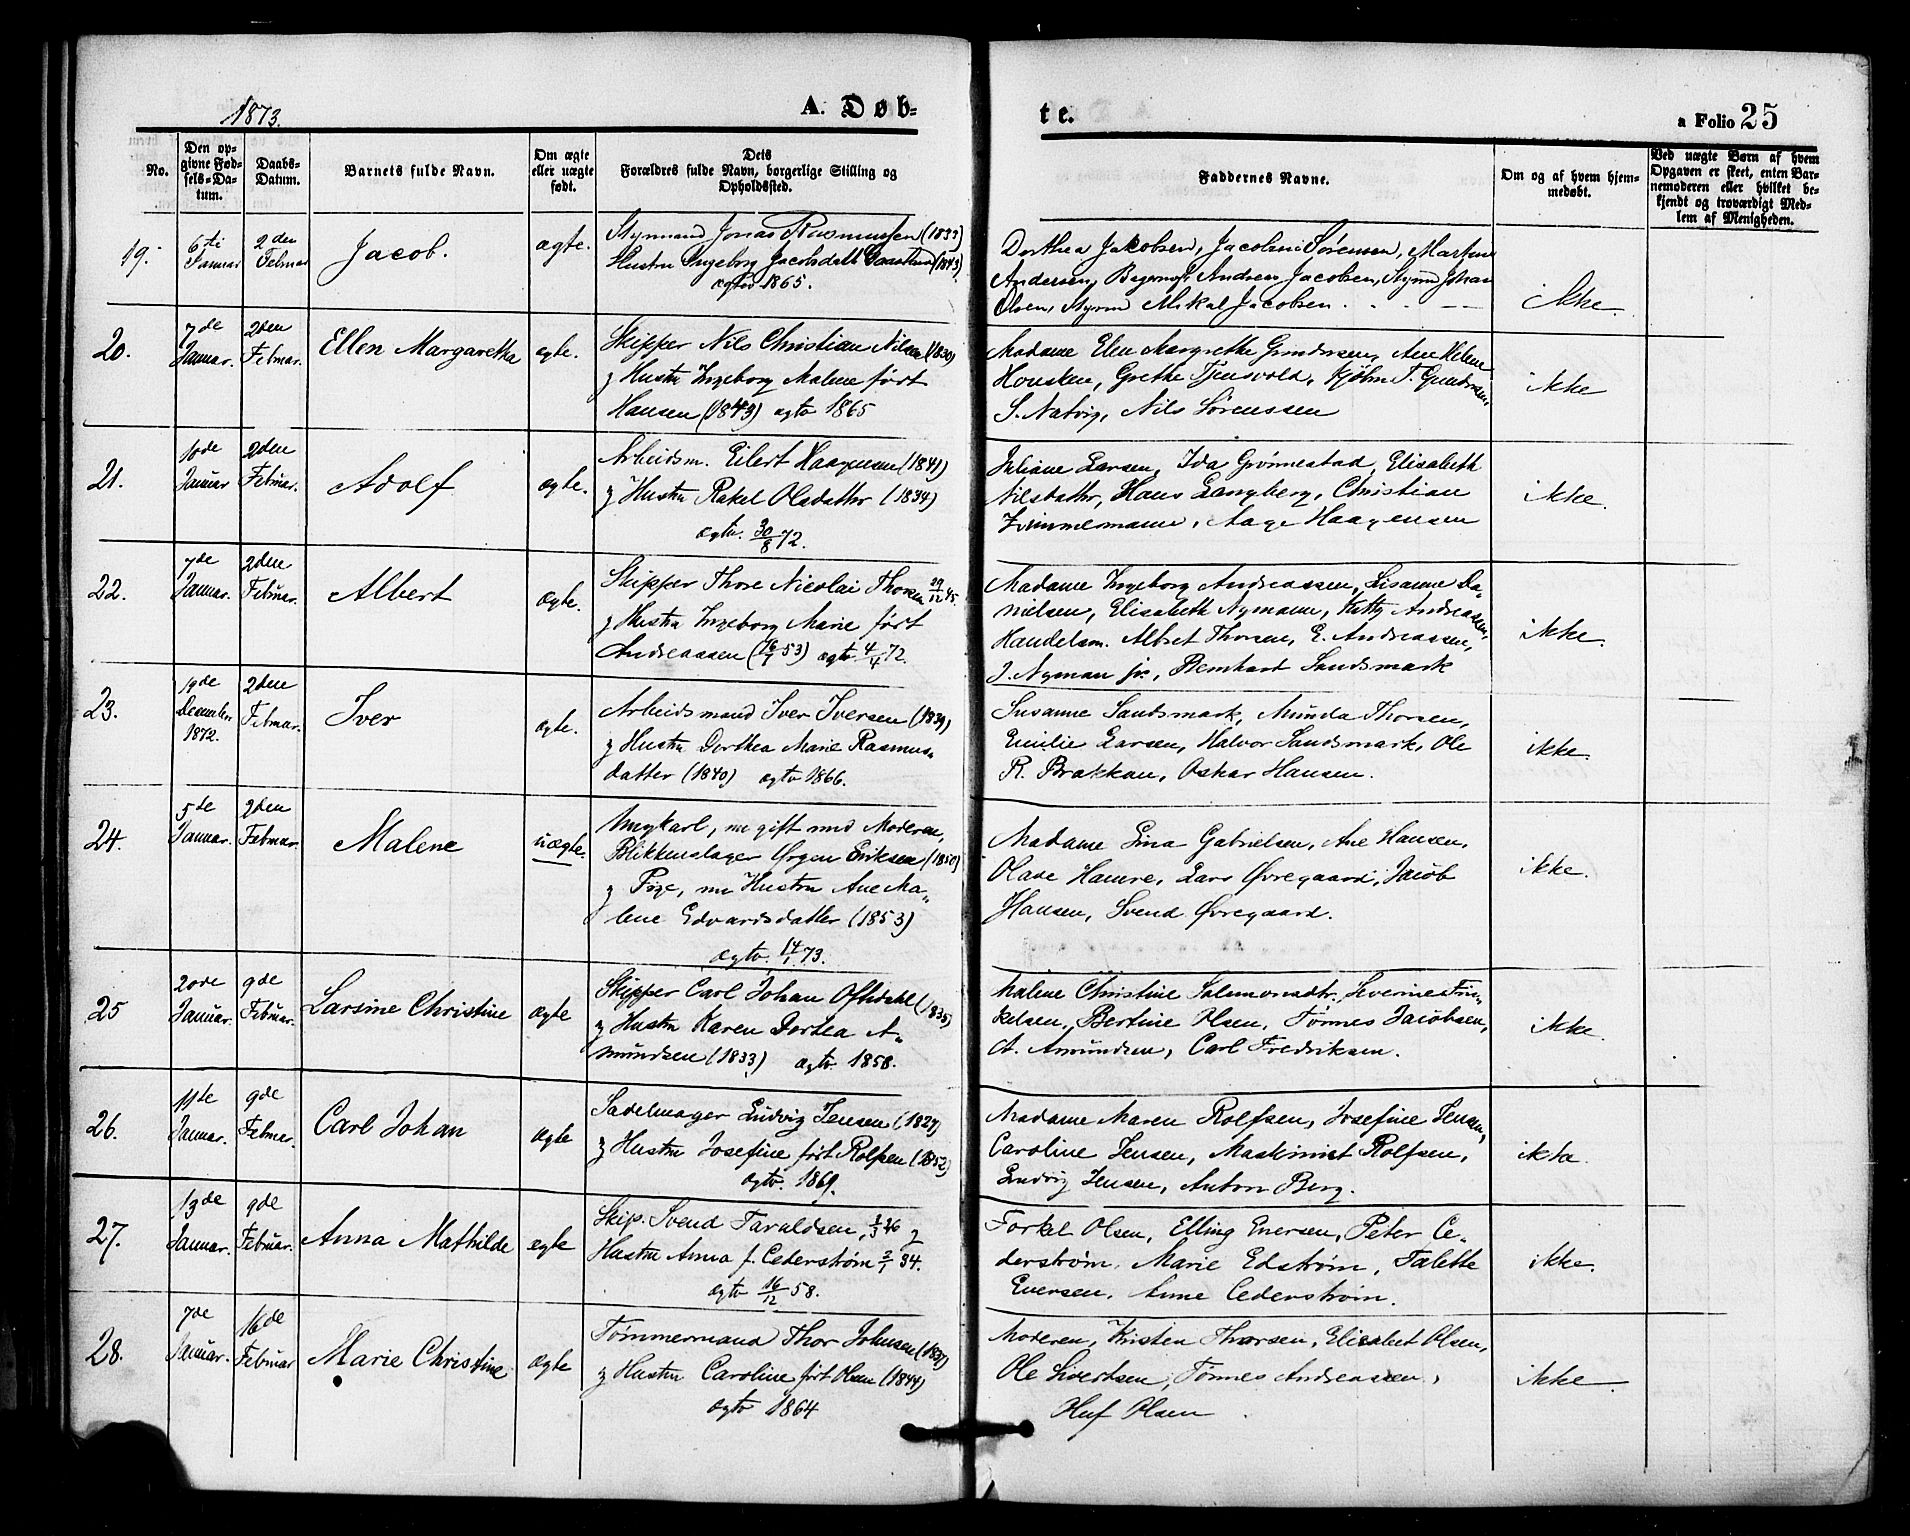 1873.
A. Døb-
te.
a Folio 25
No.
Den op-
givne Fød-
sels-Da-
tum.
Daabs-
Datum.
Barnets fulde Navn.
Om ægte
eller uægte
født.
Dets
Forældres fulde Navn, borgerlige Stilling og
Opholdssted.
Faddernes Navne.
Om og af hvem hjem-
medøbt.
Ved uægte Børn af hvem
Opgaven er skeet, enten Bar-
nemoderen eller hvilket be-
kjendt og troværdigt Med-
lem af Menigheden.
19.
6ti
Januar
2den
Februar
Jacob.
ægte.
Styrmand Jonas Rasmussen
Hustru Ingeborg Jacobsdatt
ægtv 1865.
Dorthea Jakobsen, Jacobine Sørensen, Martin
Andersen, Andreas Jacobsen, Styrm Johan
Olsen, Styrm Mikal Jacobsen
ikke.
20.
7de
Januar.
2den
Februar.
Ellen Margaretha
ægte.
Skipper Nils Christian Nilsen (1830)
g Hustru Ingeborg Malene født
Hansen (1843) ægtv 1865
Madame Elen Margrethe Gundersen, Ane Helene
Housken, Grethe Tjensvold, Kjøbm T. Gundersen,
S. Natvig, Nils Sørenssen
ikke
21.
10de
Januar
2den
Februar.
Adolf
ægte.
Arbeidsm. Eilert Haagensen (1841)
g Hustru Rakel Olsdatter (1834)
ægtv. 30/8 72.
Juliane Larsen, Ida Grønnestad, Elisabeth
Nilsdattr, Hans Langberg, Christian
Zimmermann, Aage Haagensen
ikke.
22.
7de
Januar.
2den
Februar.
Albert
ægte.
Skipper Thore Nicolai Thorsen 29/12 45.
g Hustru Ingeborg Marie født
Andreassen (53) ægtv. 4/4 72.
Madame Ingeborg Andreassen, Lisanne Da-
nielsen, Elisabeth Nymann, Kitty Andreassen,
Handelsm. Albret Thorsen, E. Andreassen,
J. Nyman jr., Bernhart Sandsmark
ikke.
23.
19de
December
1872.
2den
Februar.
Iver
ægte.
Arbeidsmand Iver Iversen (1839)
g Hustru Dorthea Marie Rasmus-
datter (1840) ægtv 1866.
Susanne Sandsmark, Munda Thorsen,
Emilie Larsen, Halvor Sandsmark, Ole
R. Brakkan, Oskar Hansen.
ikke.
24.
5de
Januar.
2den
Februar.
Malene
uægte.
Ungkarl, nu gift med Moderen,
Blikkenslager Ørgen Eriksen (1850)
g Pige, nu Hustru Ane Ma-
lene Edvardsdatter (1853)
ægtv. 14/1 73.
Madame Lina Gabrielsen, Ane Hansen,
Olave Hamre, Lars Øvregaard, Jacob
Hansen, Svend Øvregaard.
ikke.
25
20de
Januar.
9de
Februar.
Larsine Christine
ægte
Skipper Carl Johan Oftedahl (1835)
g Hustru Karen Dortea A-
mundsen (1833) ægtv. 1858.
Malene Christine Salomonsdtr, Severine Fin-
kelsen, Bertine Olsen, Tønnes Jacobsen,
A. Amundsen, Carl Fredriksen.
ikke.
26.
11te
Januar.
9de
Februar.
Carl Johan
ægte
Sadelmager Ludvig Jensen (1827)
g Hustru Josefine født Rolfsen (1852)
ægtv. 1869.
Madame Maren Rolfsen, Josefine Jensen,
Caroline Jensen, Maskinist Rolfsen,
Ludvig Jensen, Anton Berg.
ikke.
27.
13de
Januar.
9de
Februar.
Anna Mathilde
ægte
Skip. Svend Taraldsen, 26 g
Hustru Anna f. Cederstrøm 2/1 34.
ægtv 16/12 58.
Torkel Olsen, Elling Evensen, Peter Ce-
derstrøm, Marie Edstrøm, Talette
Evensen, Anne Cederstrøm.
ikke.
28.
7de
Januar.
16de
Februar
Marie Christine
ægte
Tømmermand Thor Johnsen (1837)
g Hustru Caroline født Olsen (1844)
ægtv 1864
Moderen, Kristen Thorsen, Elisabet Olsen,
Ole Sivertsen, Tønnes Andreassen,
Oluf Olsen
ikke